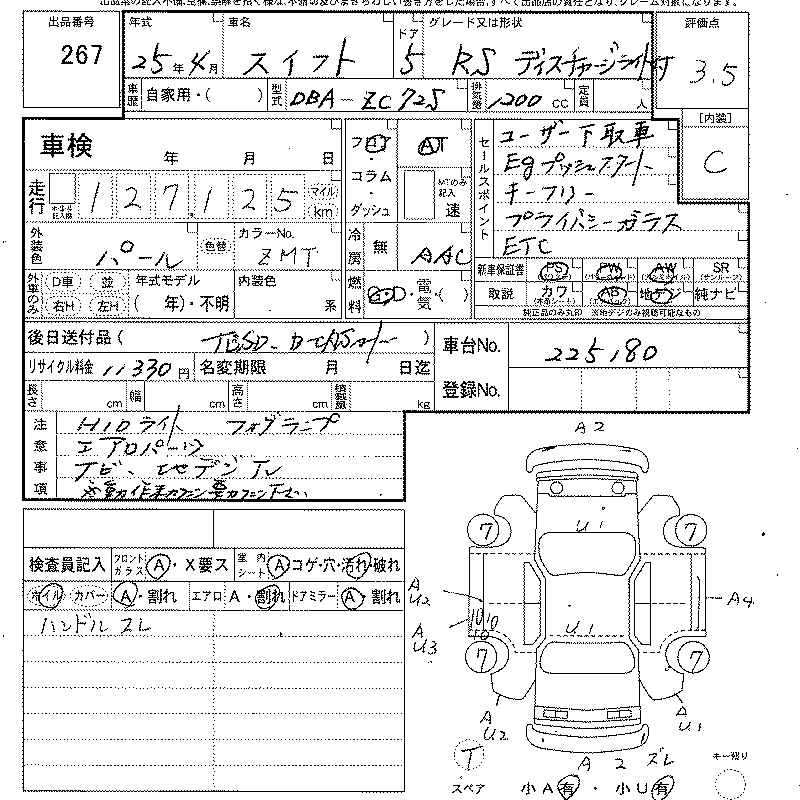 出品番号
267
年式
25年4月
車名
スイフト
ドア
5
グレード又は形状
RS ディスチャージライト付
評価点
3.5
[内装]
C
車歴
自家用・( )
型式
DBA-ZC72S
排気量
1200 CC
定員
人
車検
年 月 日
走行
127,125
マイル
km
外装色
パール
色替
カラーNo.
ZMT
外車のみ
D車 並
右H 左H
年式モデル
( 年)・不明
内装色
系
フロア
コラム
ダッシュ
AT
MTのみ記入
速
冷房
無
AAC
燃料
G・D・電気・( )
セールスポイント
ユーザー下取車
Egプッシュスタート
キーフリー
プライバシーガラス
ETC
新車保証書 PS PW AW SR
取説 カワ AB 地デジ 純ナビ
純正品のみ丸印 ※地デジのみ視聴可能なもの
後日送付品( )
リサイクル料金 11330円
名変期限 月 日迄
長さ cm 幅 cm 高さ cm 積載量 kg
車台No.
225180
登録No.
注意事項
HIDライト フォグランプ
エアロパーツ
ナビ、地デジTV
検査員記入
フロントガラス A・X要ス
室内シート A コゲ・穴・汚れ・破れ
ホイル カバー A・割れ
エアロ A・割れ
ドアミラー A・割れ
ハンドルスレ
A2
7
7
U1
A
U2
A4
10 10
10
U1
A
U3
7
7
A
U2
A
U1
T
スペア
A 2 ズレ
小A有・小U有
キー残り